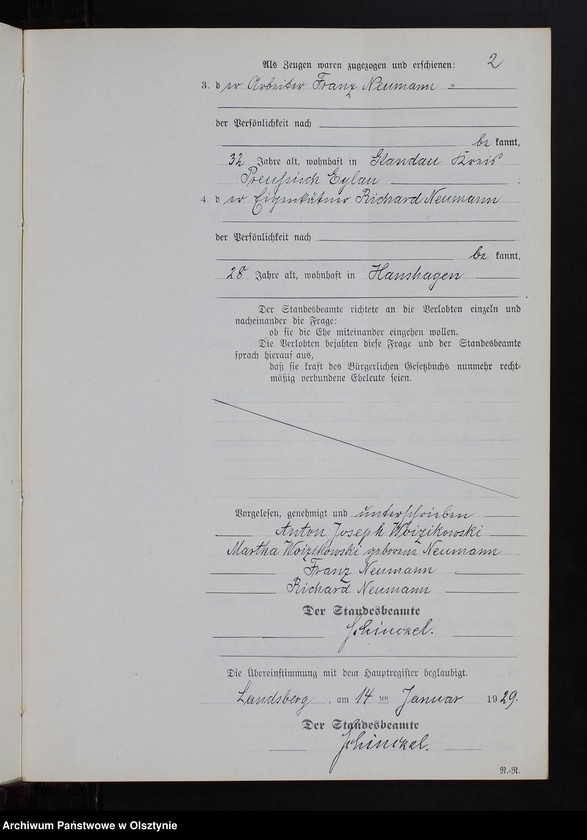 2
Als Zeugen waren zugezogen und erschienen:
3. der Arbeiter Franz Neumann
der Persönlichkeit nach
be kannt,
32 Jahre alt, wohnhaft in Glandau Kreis
Preußisch Eylau
4. der Eigenkätner Richard Neumann
der Persönlichkeit nach
be kannt,
28 Jahre alt, wohnhaft in Hanshagen
Der Standesbeamte richtete an die Verlobten einzeln und
nacheinander die Frage:
ob sie die Ehe miteinander eingehen wollen.
Die Verlobten bejahten diese Frage und der Standesbeamte
sprach hierauf aus,
daß sie kraft des Bürgerlichen Gesetzbuchs nunmehr recht-
mäßig verbundene Eheleute seien.
Vorgelesen, genehmigt und unterschrieben
Anton Joseph Woizikowski
Martha Woizikowski geborene Neumann
Franz Neumann
Richard Neumann
Der Standesbeamte
Schinckel.
Die Übereinstimmung mit dem Hauptregister beglaubigt.
Landsberg, am 14 ten Januar 1929.
Der Standesbeamte
Schinckel.
R.-R.
Archiwum Państwowe w Olsztynie